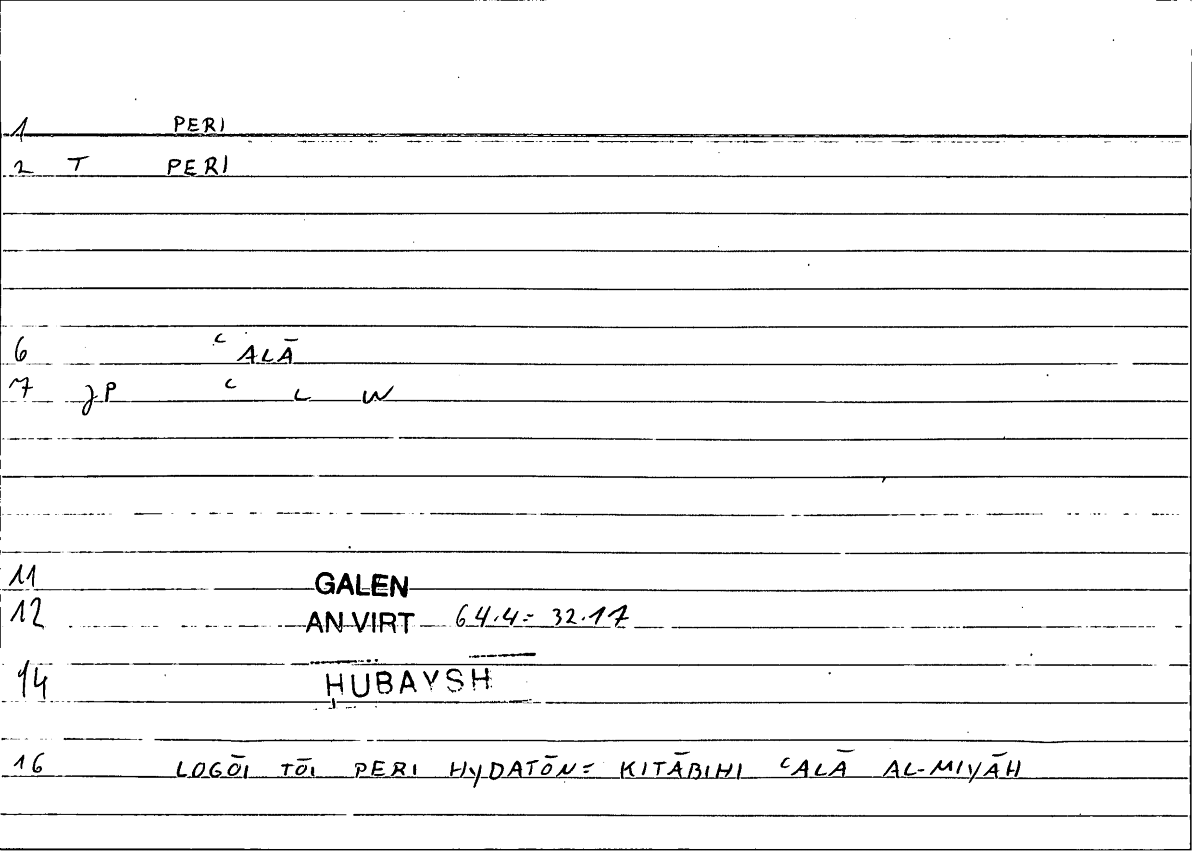 1 PERI
2 T PERI
6 ʿALĀ
7 JP ʿ L W
11 GALEN
12 AN VIRT 64.4 = 32.17
14 ḤUBAYSH
16 LOGŌI TŌI PERI HYDATŌN = KITĀBIHI ʿALĀ AL-MIYĀH